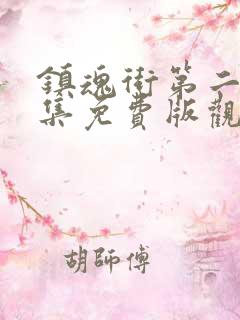 鎮魂街第二
集免費版觀
胡師傅